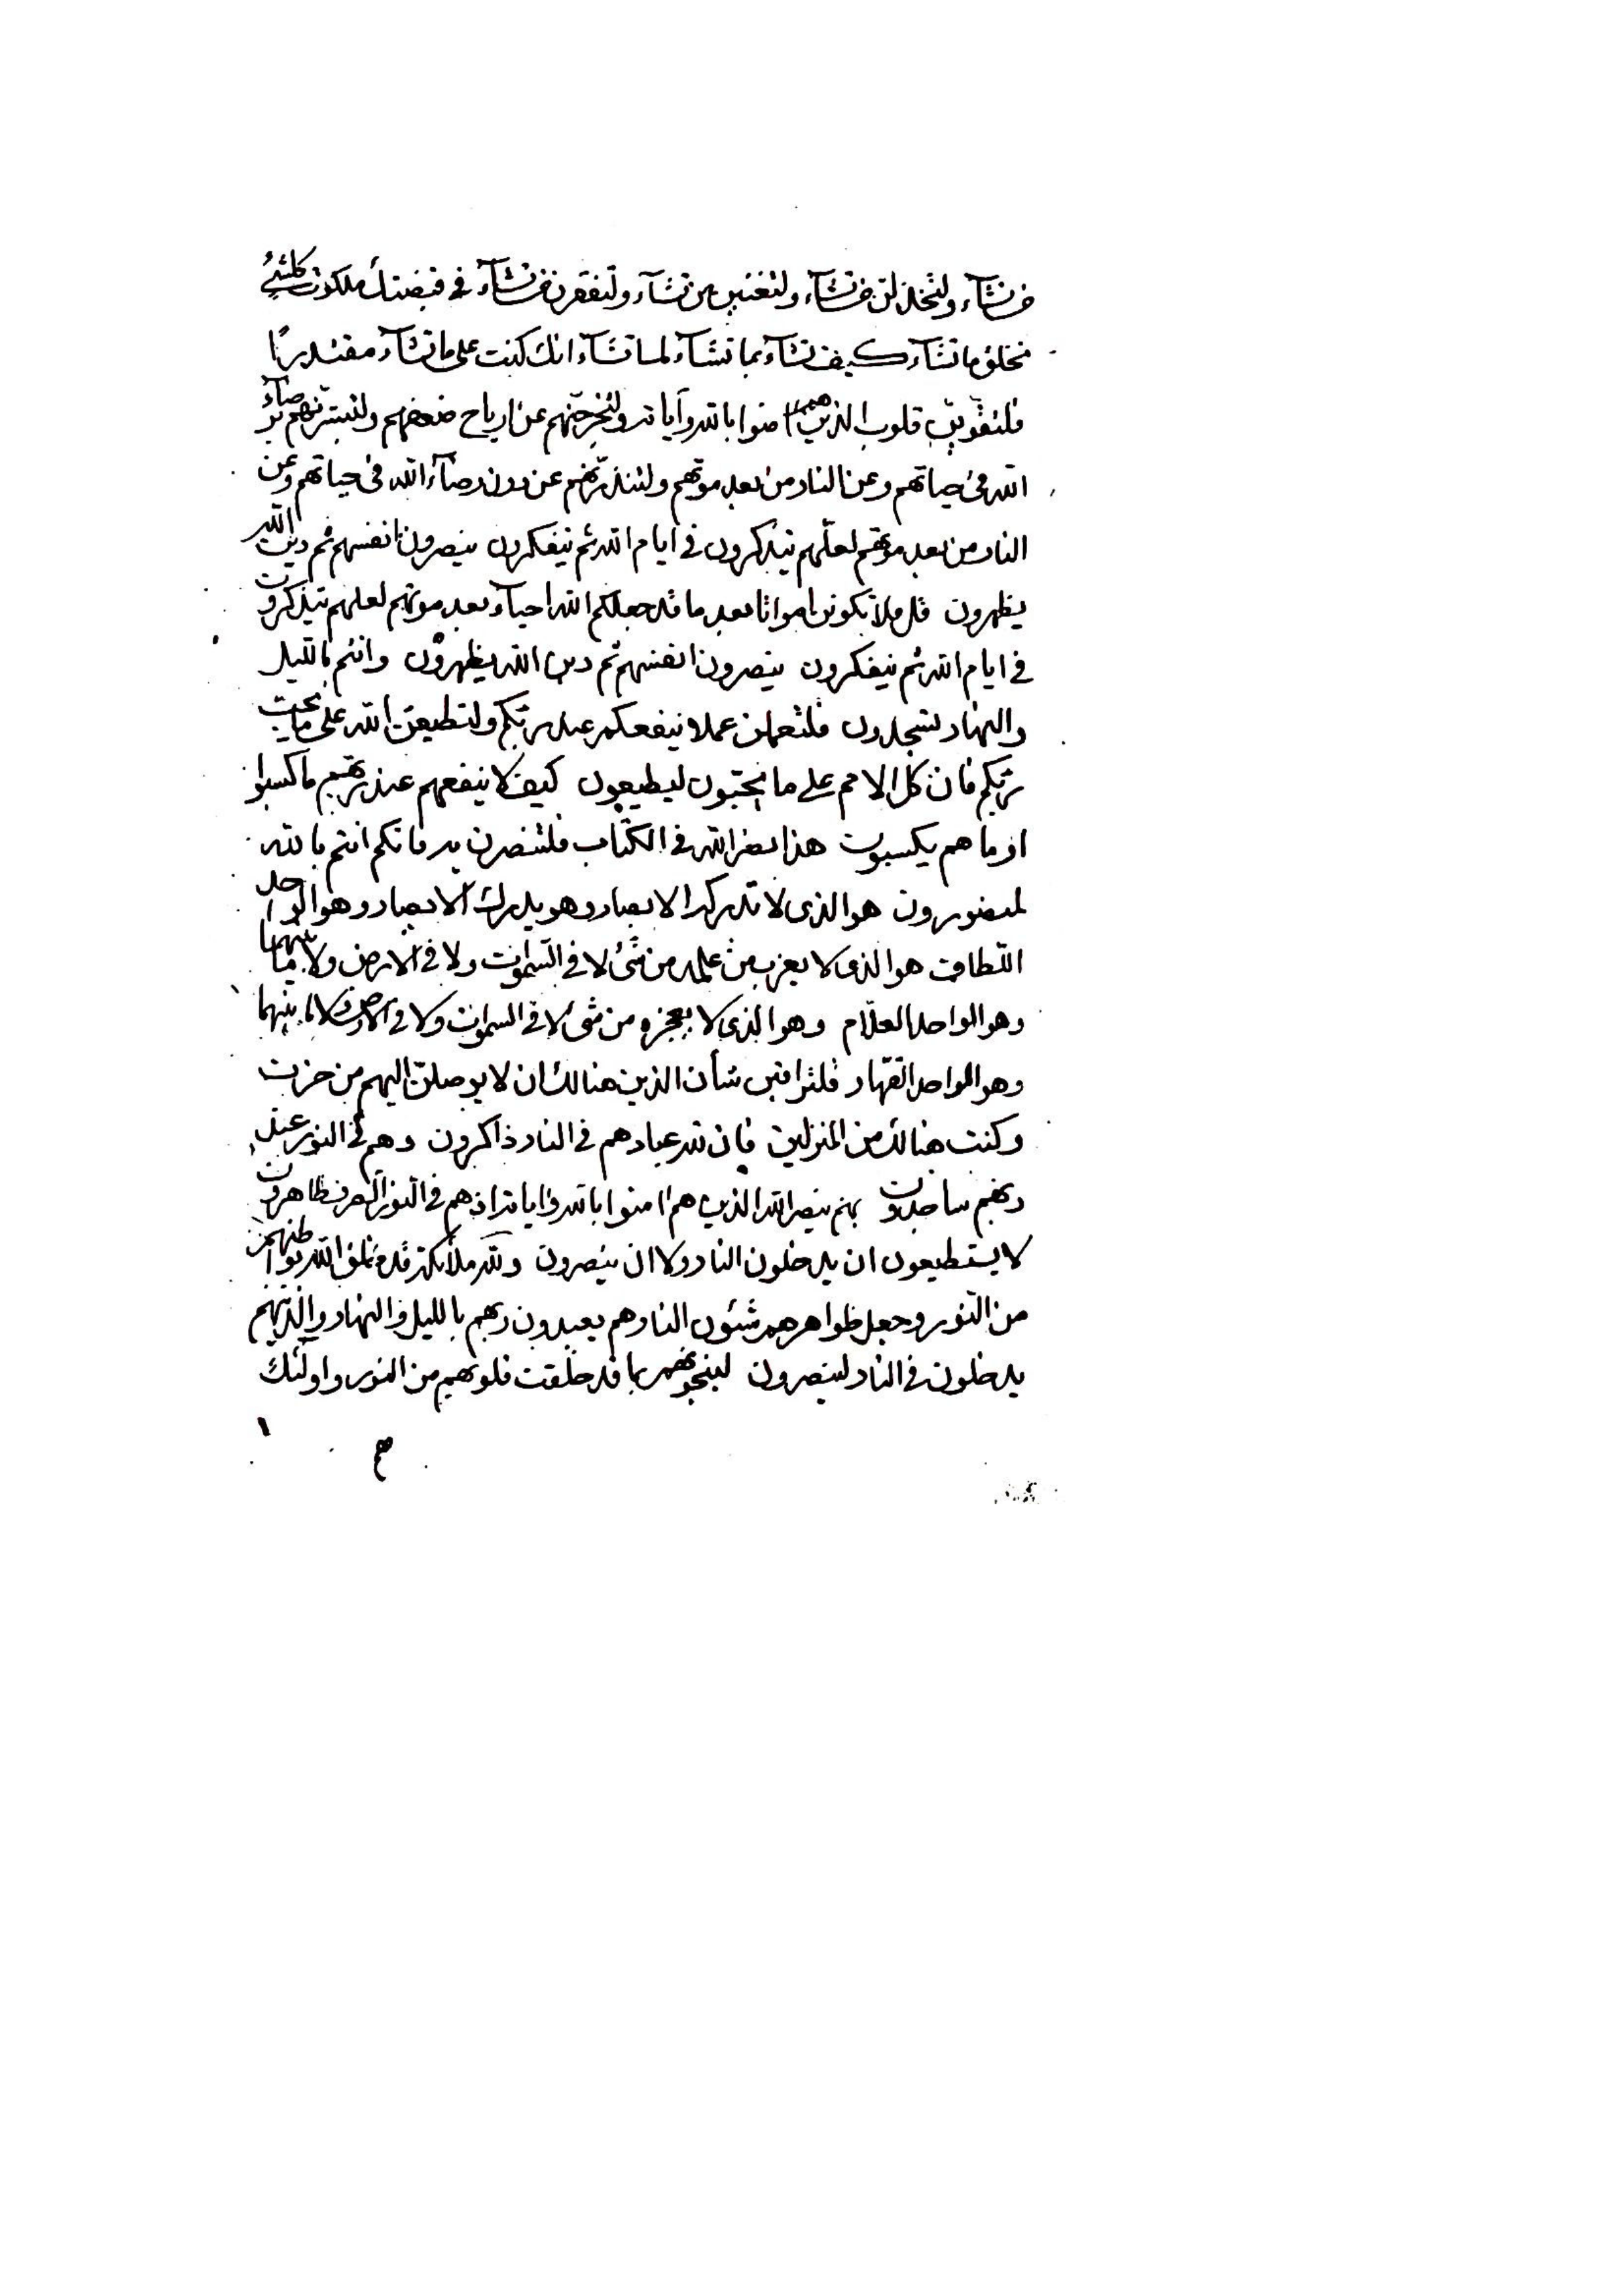 من تشآء ولتخذلن من تشآء ولتغنين من تشآء ولتفقرن من تشآء في قبضتك ملكوت كلشئ
تخلق ما تشآء كيف تشآء بما تشآء لما تشآء انك كنت على ما تشآء مقتدرًا
فلتقوين قلوب الذين هم امنوا بالله وآياته ولتخرجنهم عن ارياح ضعفهم ولتبشرنهم برضآء
الله في حياتهم وعن النار من بعد موتهم ولتنذرنهم عن دون رضآء الله في حياتهم وعن
النار من بعد موتهم لعلهم يتذكرون في ايام الله ثم يتفكرون ينصرون انفسهم ثم دين الله
يظهرون قل فلا تكونن امواتا بعد ما قد جعلكم الله احيآء بعد موتهم لعلهم يتذكرون
في ايام الله ثم يتفكرون ينصرون انفسهم ثم دين الله يظهرون وانتم بالليل
والنهار لتسجدون فلتعملن عملا ينفعكم عند ربكم ولتطيعن الله على ما يحب
ربكم فان كل الامم على ما يحبون ليطيعون كيف لا ينفعهم عند ربهم ما كسبوا
او ما هم يكسبون هذا نصر الله في الكتاب فلتنصرن به فانكم انتم بالله
لمنصورون هو الذى لا تدركه الابصار وهو يدرك الابصار وهو الواحد
اللطاف هو الذى لا يعزب من علمه من شئ لا في السموات ولا في الارض ولا ما بينهما
وهو الواحد العلام وهو الذى لا يعجزه من شئ لا في السموات ولا في الارض ولا ما بينهما
وهو الواحد القهار فلتراقبن شأن الذين هنالك ان لا يوصلن اليهم من حزن
وكنت هنالك من المنزلين فان لله عبادهم في النار ذاكرون وهم في النور عند
ربهم ساجدون بهم ينصر الله الذين هم امنوا بالله واياته اذ هم في النور الصرف ظاهرون
لا يستطيعون ان يدخلون النار ولا ان ينصرون ولله ملائكة قد خلق الله بواطنهم
من النور وجعل ظواهرهم شئون النار هم يعبدون ربهم بالليل والنهار
يدخلون في النار لينصرون لينجونهم بما قد خلقت قلوبهم من النور واولئك
هم